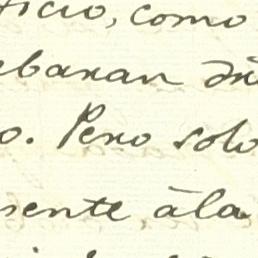 ficio, como
ebaran
o. Pero solo
sente, àla